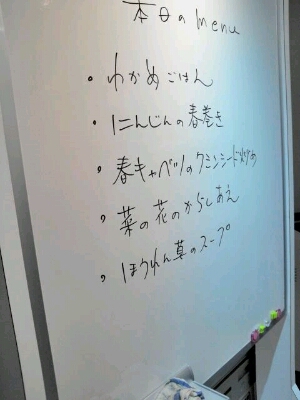 本日の menu
・わかめごはん
・にんじんの春巻き
・春キャベツのクミンシード炒め
・菜の花のからしあえ
・ほうれん草のスープ